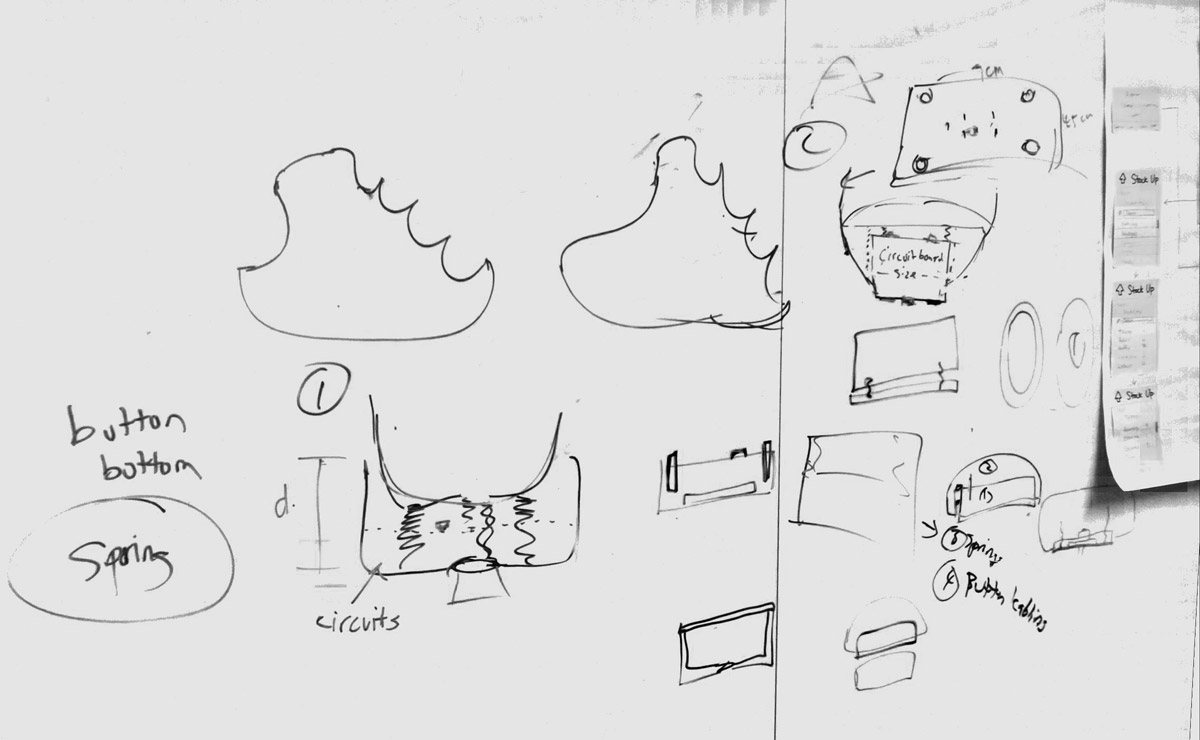 button
bottom
Spring
1
d.
circuits
2
9cm
4.5cm
Circuit board
size
2
3 Spring
4 Button
Stack Up
Stack Up
Stack Up